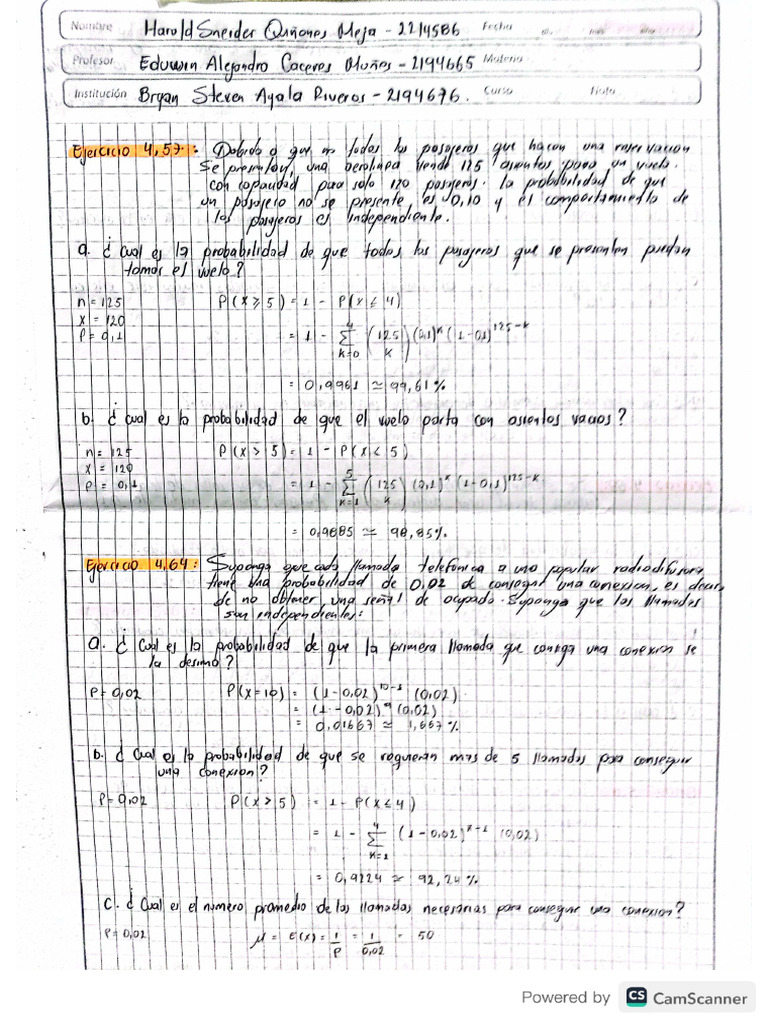 Nombre Harold Sneider Quiñones Mejia - 2214586 Fecha
Profesor Eduwin Alejandro Caceres Muñes - 2194665 Materia
Institución Bryan Steven Ayala Riveros - 2194676. Curso Nota
Ejercicio 4,57: Debido a que no todos los pasajeros que hacen una reservacion
se presentan, una aerolinea vende 125 asientos para un vuelo.
con capacidad para solo 120 pasajeros. la probabilidad de que
un pasajero no se presente, es 0,10 y el comportamiento de
los pasajeros es independiente.
a. ¿Cual es la probabilidad de que todos los pasajeros que se presenten puedan
tomar el vuelo?
n = 125 P(x ≥ 5) = 1 - P(x ≤ 4)
x = 120
P = 0,1 = 1 - 4 Σ k=0 (125 k) (0,1)^k (1-0,1)^125-k
= 0,9961 ≃ 99,61%
b. ¿cual es la probabilidad de que el vuelo parta con asientos vacios?
n = 125 P(x > 5) = 1 - P(x ≤ 5)
x = 120
P = 0,1 = 1 - 5 Σ k=1 (125 k) (0,1)^k (1-0,1)^125-k
= 0,9885 ≃ 98,85%.
Ejercicio 4,64: Suponga que cada llamada telefonica a una popular radiodifusora
tiene una probabilidad de 0,02 de conseguir una conexion, es decir
de no obtener una señal de ocupado. Suponga que las llamadas
son independientes:
a. ¿Cual es la probabilidad de que la primera llamada que consiga una conexion se
la desimo?
P = 0,02 P(x=10) = (1-0,02)^10-1 (0,02)
= (1-0,02)^9 (0,02)
= 0,01667 ≃ 1,667%
b. ¿Cual es la probabilidad de que se requieran mas de 5 llamadas para conseguir
una conexion?
P = 0,02 P(x > 5) = 1 - P(x ≤ 4)
= 1 - 4 Σ k=1 (1-0,02)^x-1 (0,02)
= 0,9224 ≃ 92,24%
c. ¿Cual es el numero promedio de las llamadas necesarias para conseguir una conexion?
P = 0,02 μ = E(x) = 1/P = 1/0,02 = 50
Powered by CS CamScanner